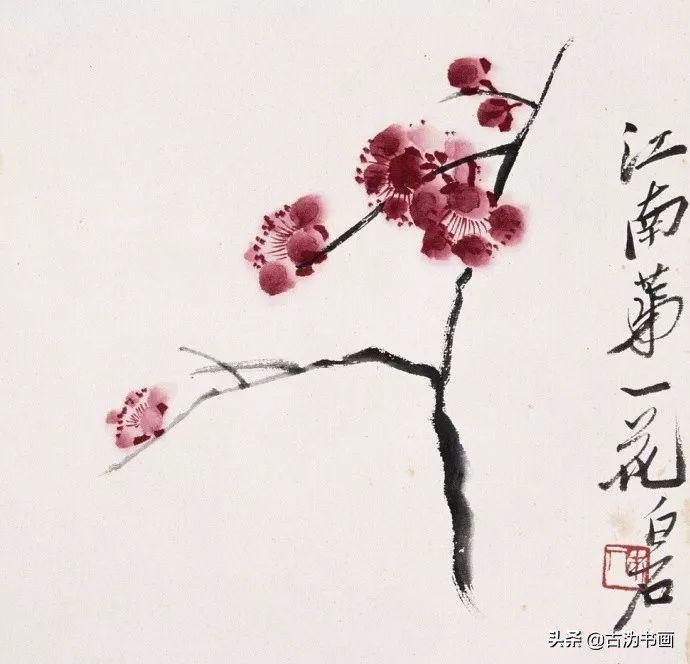 江南第一花白石
头条 @古沩书画